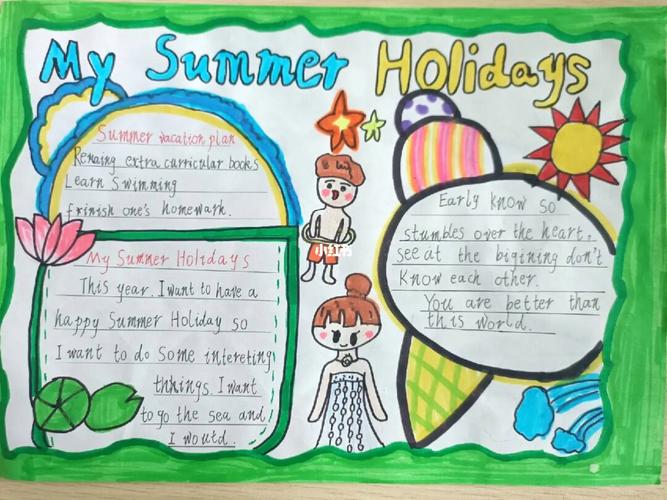 My Summer Holidays
Summer vacation plan
Remaing extra curricular books
Learn Swimming
frinish one's homewarh.
My Summer Holidays
This year. I want to have a
happy Summer Holiday so
I want to do some intereting
thkings. I want
to go the sea and
I woutd.
Early know so
stumbles over the heart,
see at the bigining don't
Know each other.
You are better than
this world.
小红书